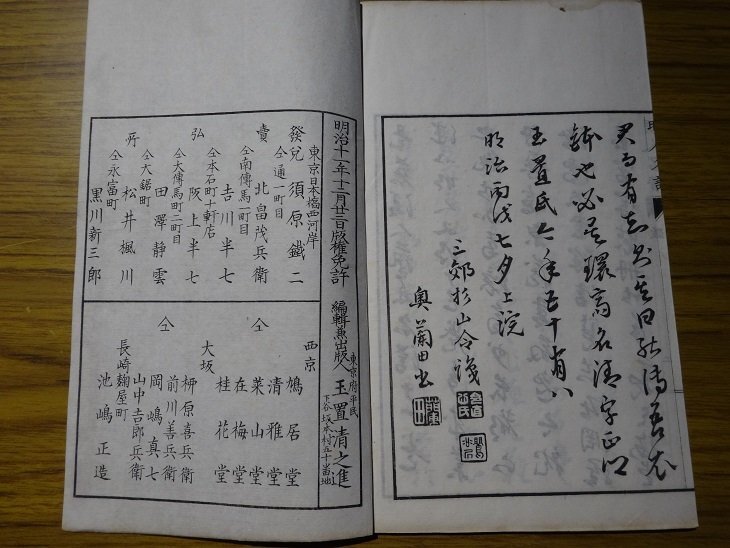 君子有
鉢也必是環斎名清字正卿
玉置氏今年五十有八
明治丙戌七夕上浣
三郊杉山令譲
奥蘭田書
明治十一年十二月廿三日版権免許
編輯兼出版人
東京府平民
玉置清之進
下谷坂本村五十番地
東京日本橋西河岸
發兌
須原鐵二
仝通一町目
賣
北畠茂兵衛
仝南傳馬一町目
吉川半七
仝本石町十軒店
弘
阪上半七
仝大傳馬町二町目
田澤静雲
仝大鋸町
所
松井楓川
仝永富町
黒川新三郎
西京
鳩居堂
清雅堂
仝
菜山堂
在梅堂
桂花堂
大坂
柳原喜兵衛
前川善兵衛
仝
岡嶋真七
山中吉郎兵衛
長崎麹屋町
池嶋正造